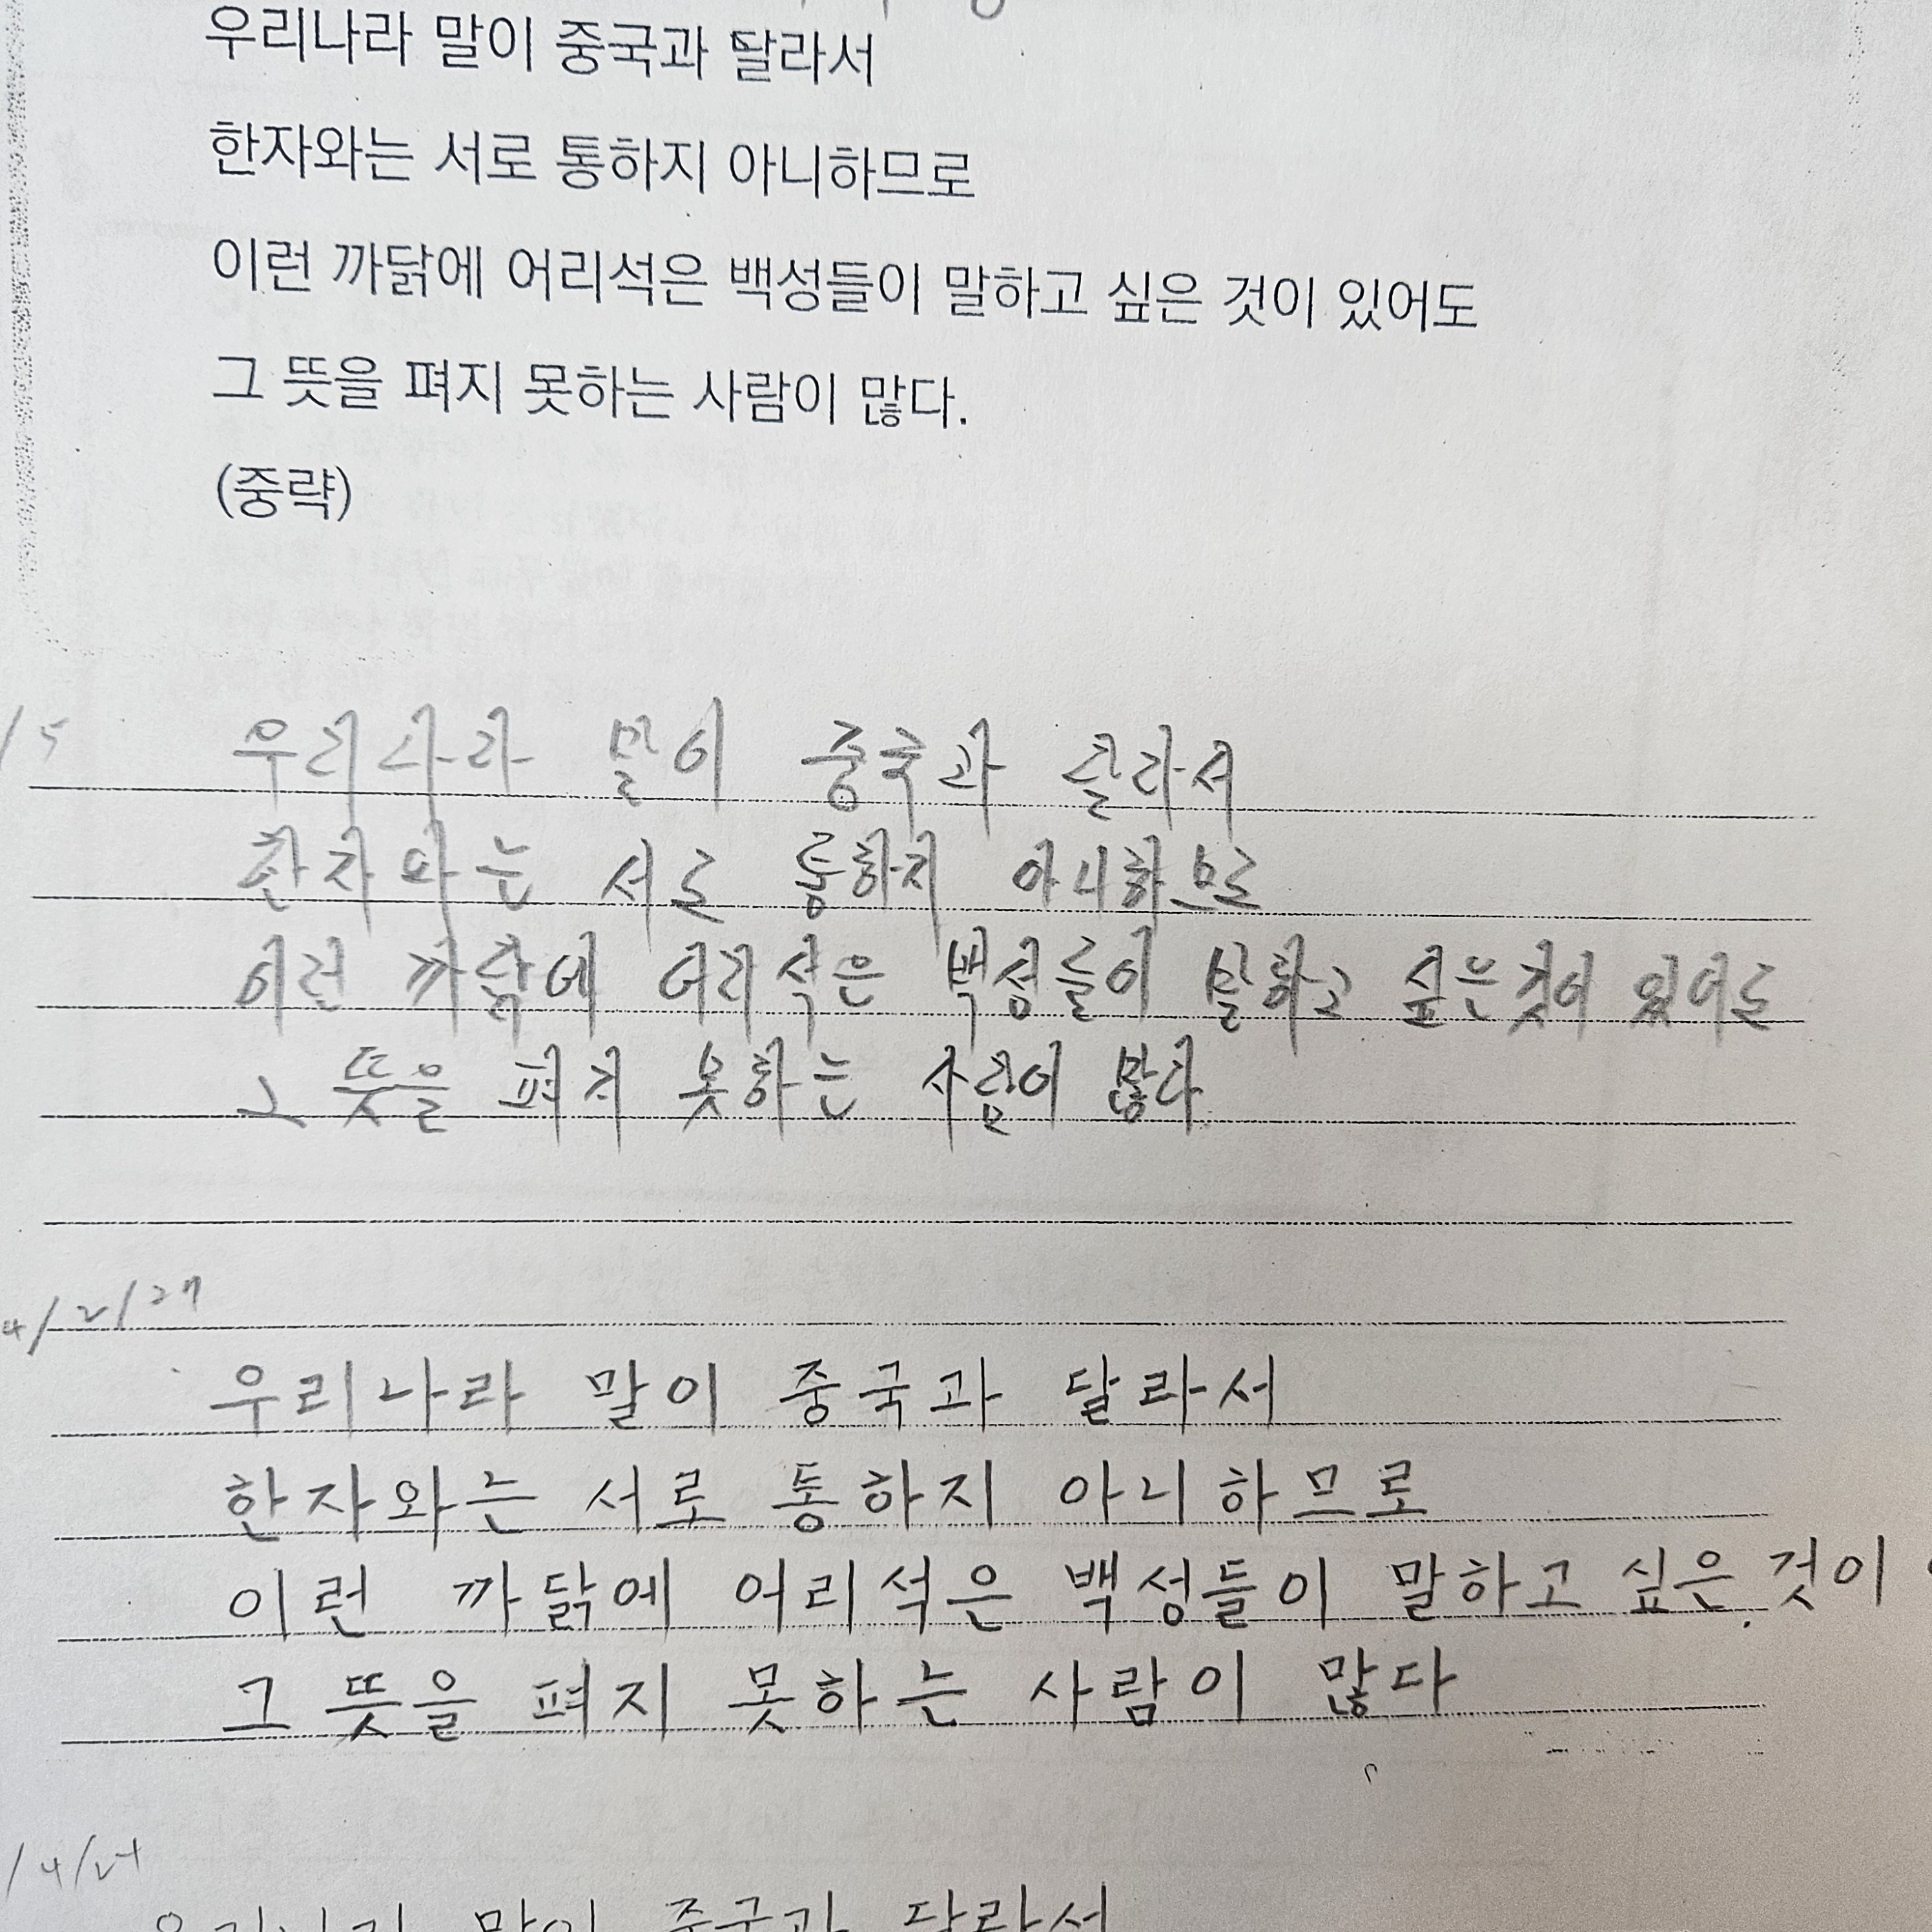 우리나라 말이 중국과 달라서
한자와는 서로 통하지 아니하므로
이런 까닭에 어리석은 백성들이 말하고 싶은 것이 있어도
그 뜻을 펴지 못하는 사람이 많다.
(중략)
/5
우리나라 말이 중국과 달라서
한자와는 서로 통하지 아니하므로
이런 까닭에 어리석은 백성들이 말하고 싶은 것이 있어도
그 뜻을 펴지 못하는 사람이 많다.
4/2/27
우리나라 말이 중국과 달라서
한자와는 서로 통하지 아니하므로
이런 까닭에 어리석은 백성들이 말하고 싶은 것이
그 뜻을 펴지 못하는 사람이 많다
/4/24
우리나라 말이 중국과 달라서